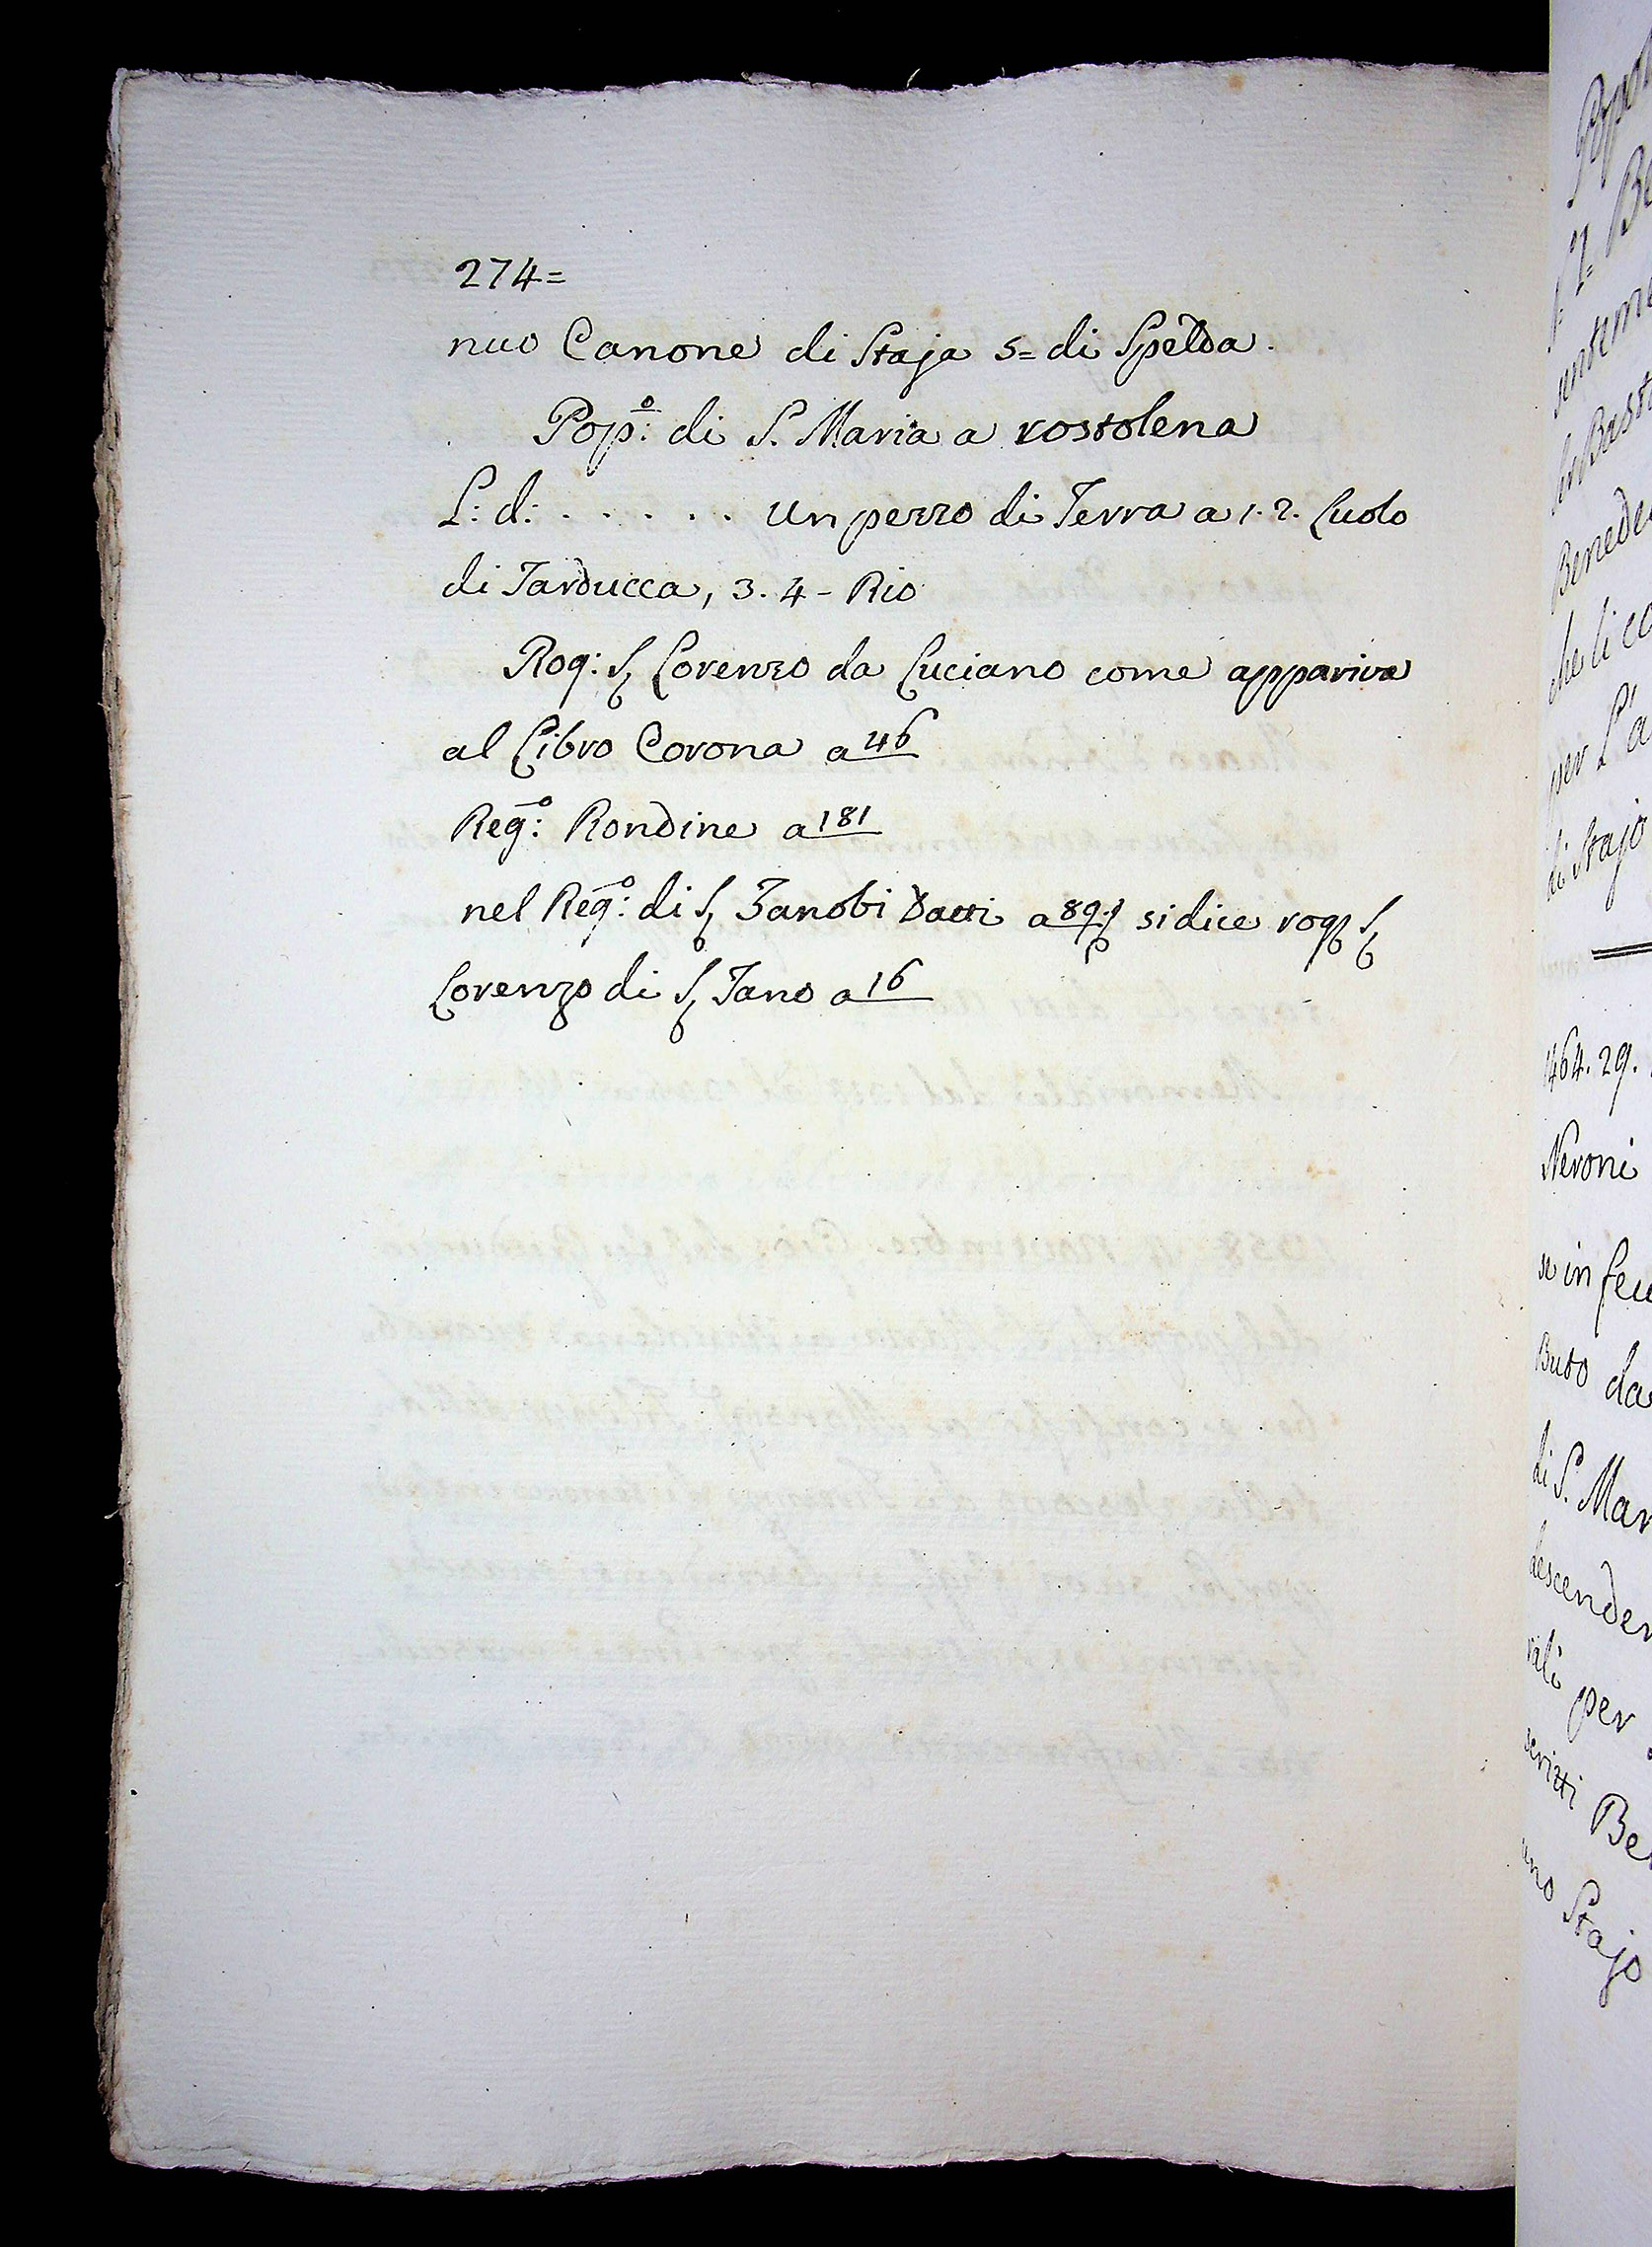 274=
nuo Canone di Staja 5= di Spelda.
Pop:º di S. Maria a rostolena
L: d: . . . . . . un pezzo di Terra a 1. 2. Luolo
di Tarducca, 3. 4- Rio
Rog: S. Lorenzo da Luciano come appariva
al Libro Corona a 46
Reg:º Rondine a 181
nel Reg:º di S. Zanobi Datti a 89 si dice rog S.
Lorenzo di S. Tano a 16
di Stajo
464. 29.
Neroni
in feu
Buto da
di S. Mar
descenden
per
scritti Be
uno Stajo